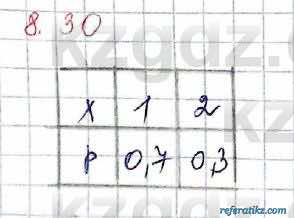 8.30
X 1 2
P 0,7 0,3
referatikz.com